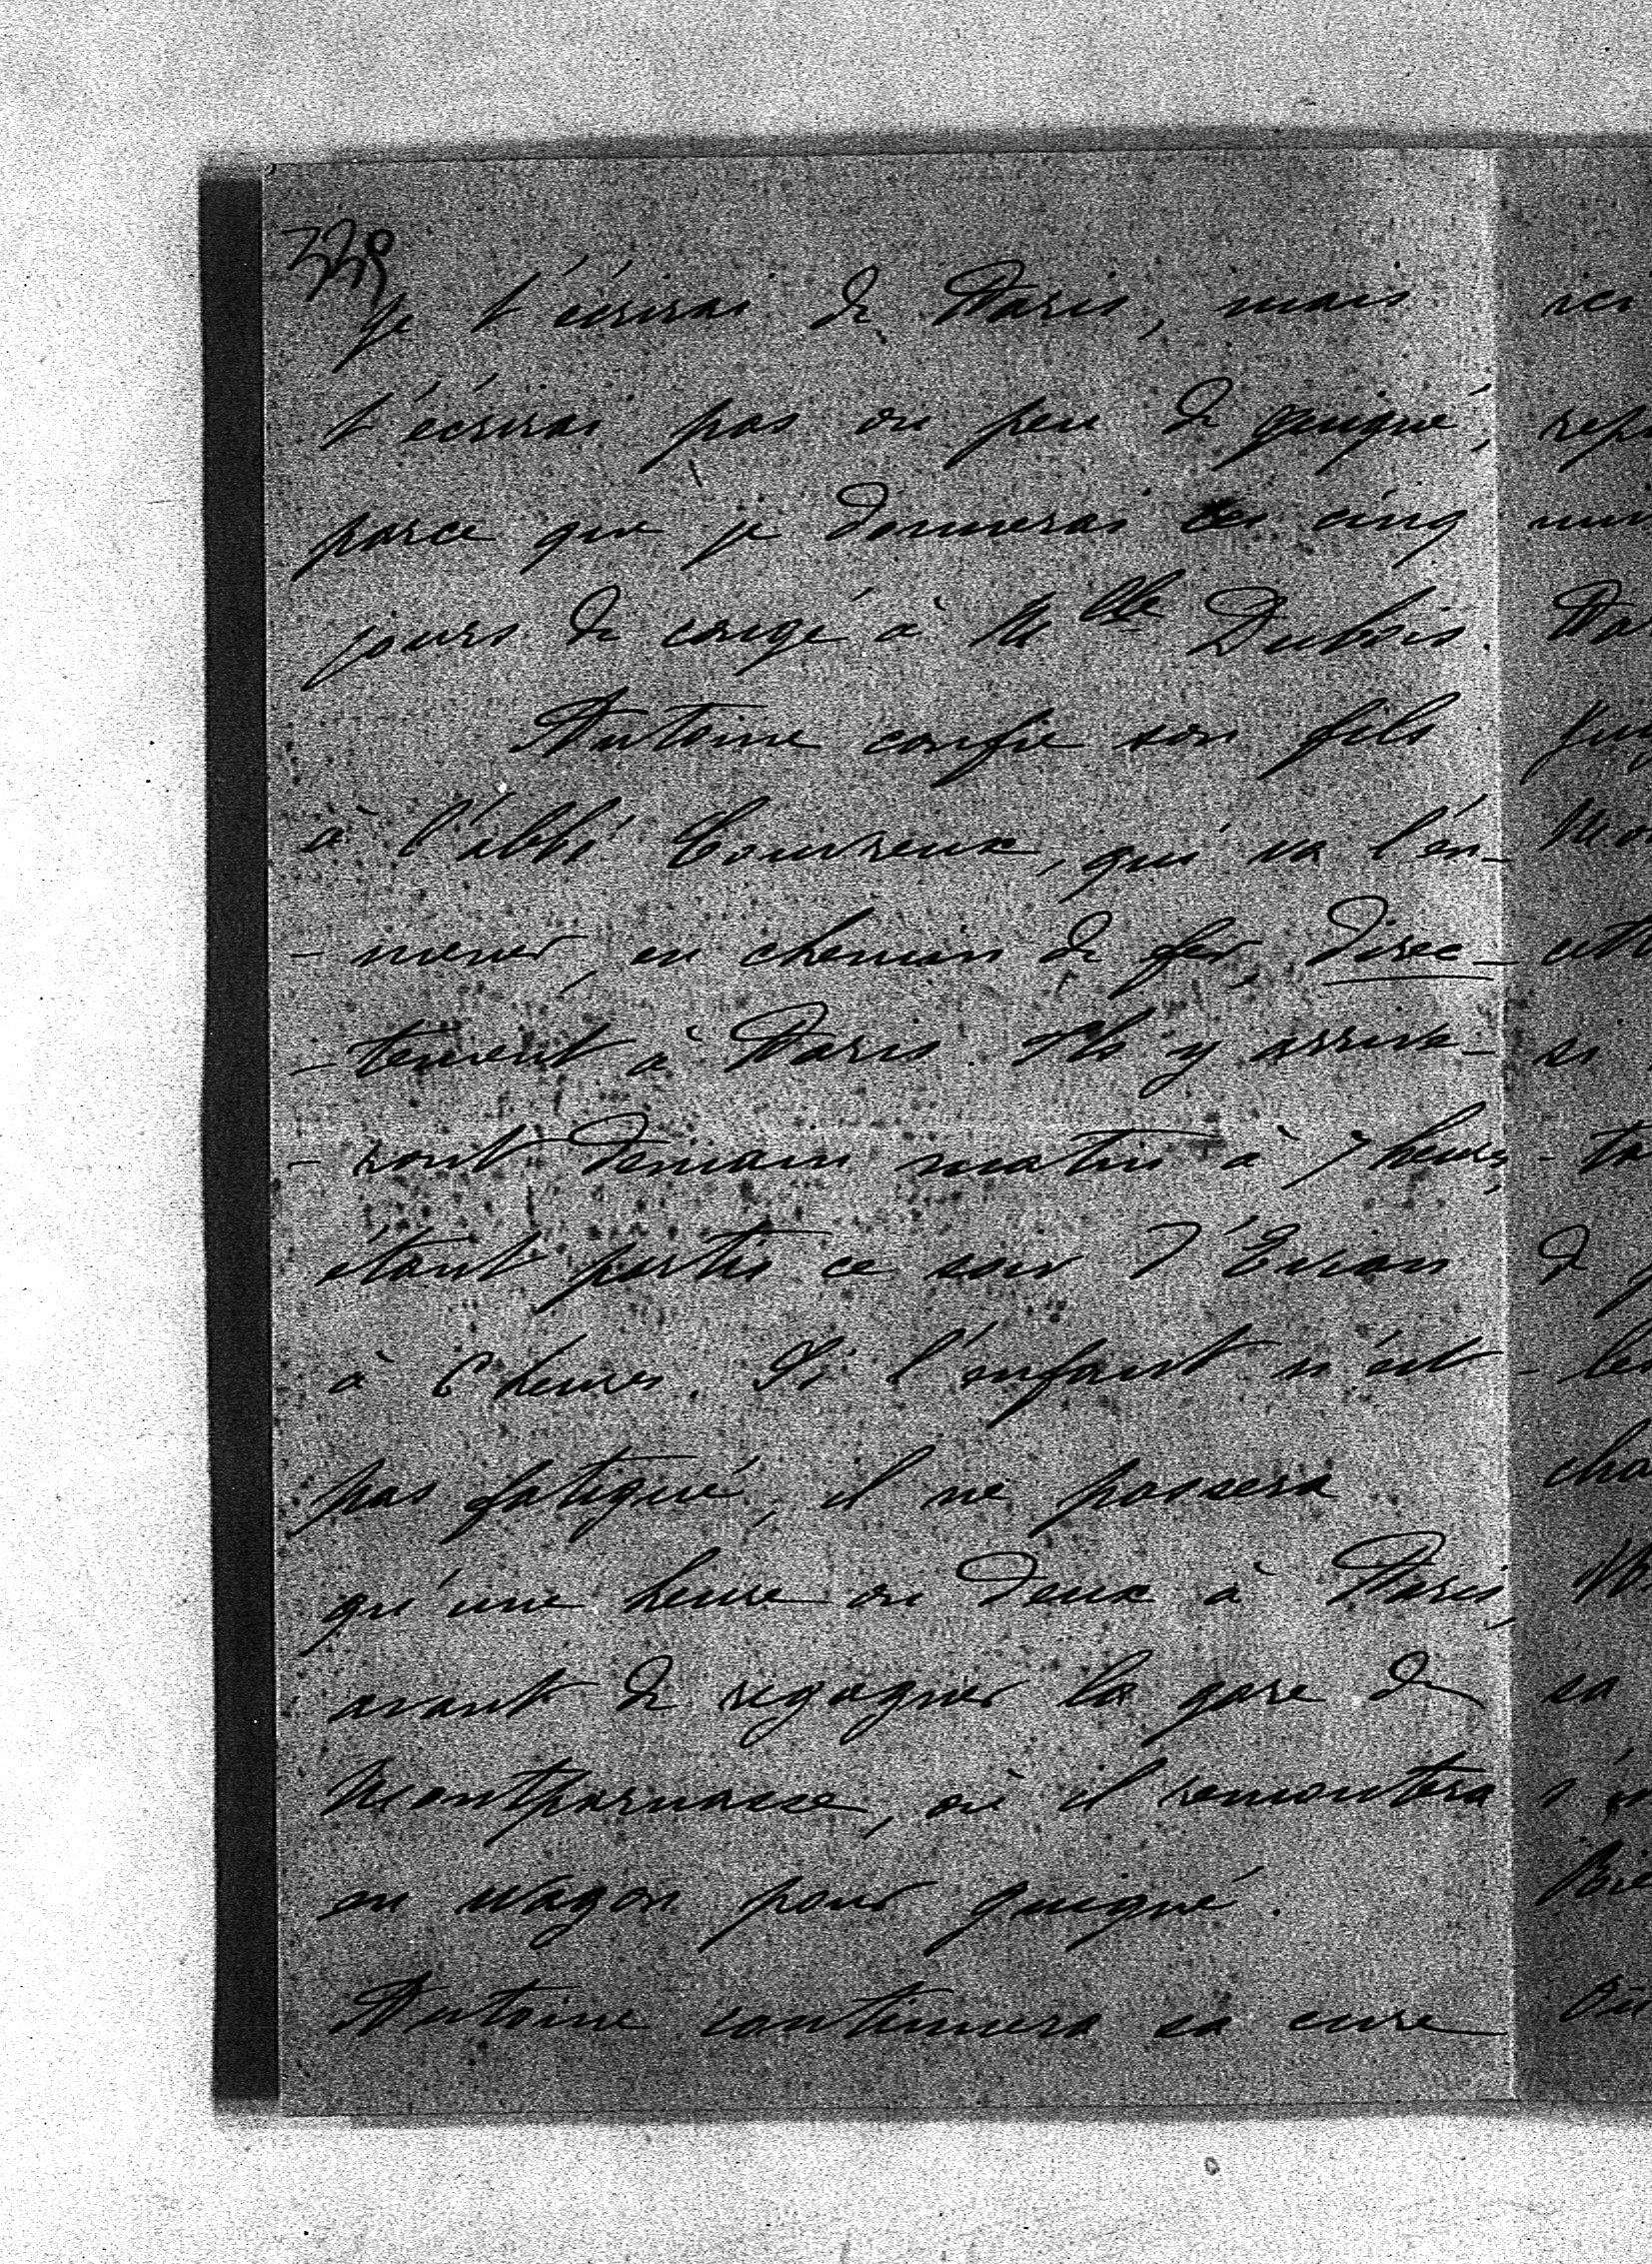 339
je t'écrirai de Paris, mais
t'écrirai pas ou peu de Guigné,
parce que je donnerai ces cinq
jours de congé à Mlle Dubois.
Antoine confie son fils
à l'abbé Couvreux, qui va l'em-
-mener, en chemin de fer, direc-
-tement à Paris. Ils y arrive-
-ront demain matin à 7 heures,
étant partis ce soir d'Evian
à 6 heures. Si l'enfant n'est
pas fatigué, il ne passera
qu'une heure ou deux à Paris,
avant de regagner la gare de
Montparnasse, où il remontera
en wagon pour Guigné.
Antoine continuera sa cure